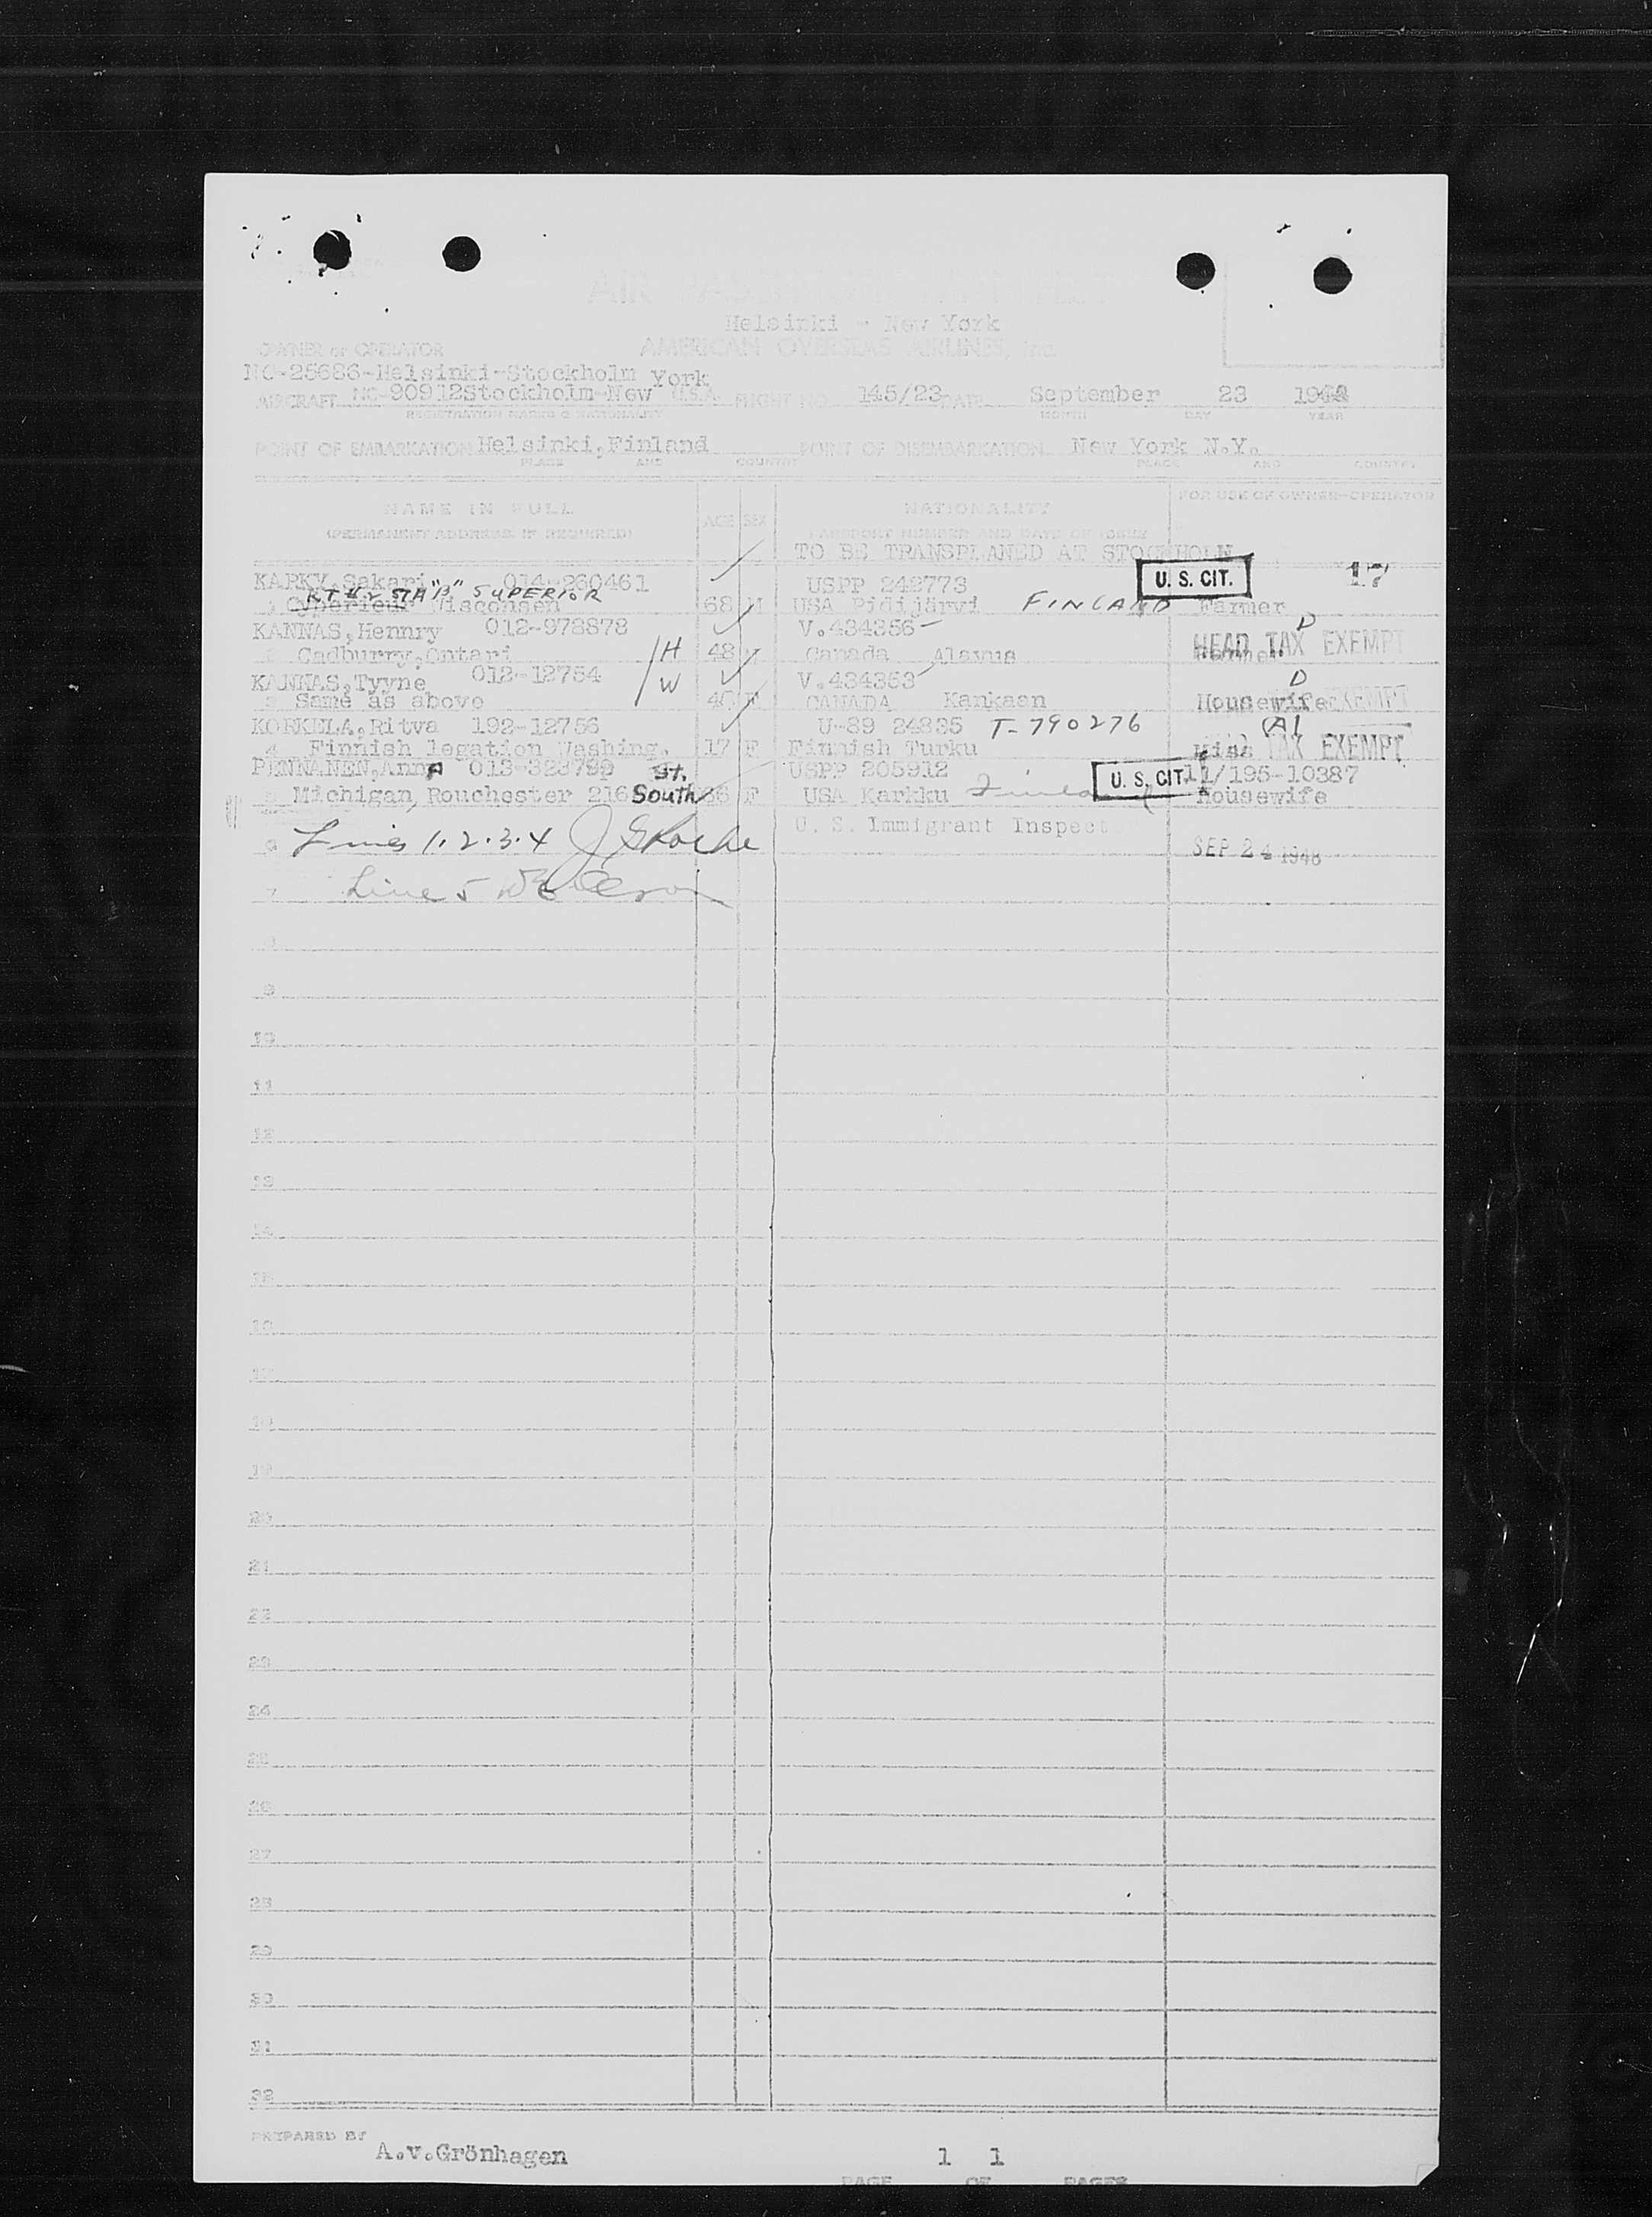 AIR PASSENGER MANIFEST
Helsinki - New York
OWNER or OPERATOR AMERICAN OVERSEAS AIRLINES, Inc.
NC-25686-Helsinki-Stockholm York
AIRCRAFT NC-90912Stockholm-New U.S.A. FLIGHT NO. 145/23 DATE September 23 1948
REGISTRATION MARKS & NATIONALITY MONTH DAY YEAR
POINT OF EMBARKATION Helsinki,Finland POINT OF DISEMBARKATION New York N.Y.
PLACE AND COUNTRY PLACE AND COUNTRY
NAME IN FULL AGE SEX NATIONALITY FOR USE OF OWNER-OPERATOR
(PERMANENT ADDRESS IF REQUIRED) PASSPORT NUMBER AND DATE OF ISSUE
TO BE TRANSPLANED AT STOCKHOLM
KARKY,Sakari 014-260461 USPP 242773 U. S. CIT. 17
"B" SUPERIOR
Cyperieur Wisconsen 68 M USA Pidijärvi FINLAND Farmer
KANNAS,Hennry 012-978878 V.434356 D
2 Cadburry,Ontari H 48 M Canada Alavus HEAD TAX EXEMPT
KANNAS,Tyyne 012-12754 W V.434353 D
3 Same as above 40 F CANADA Kankaan Housewife EXEMPT
KORKELA,Ritva 192-12756 U-89 24835 T-790276 (A)
4 Finnish legation Washing. 17 F Finnish Turku Miss TAX EXEMPT
PENNANEN,Anna 013-328792 st. USPP 205912 U. S. CIT. 11/195-10387
5 Michigan, Rouchester 216 South F USA Karkku Finland Housewife
U. S. Immigrant Inspect
6 Lines 1.2.3.4 SEP 24 1948
7 Line 5
8
9
10
11
12
13
14
15
16
17
18
19
20
21
22
23
24
25
26
27
28
29
30
31
32
PREPARED BY A.v.Grönhagen 1 1
PAGE OF PAGES